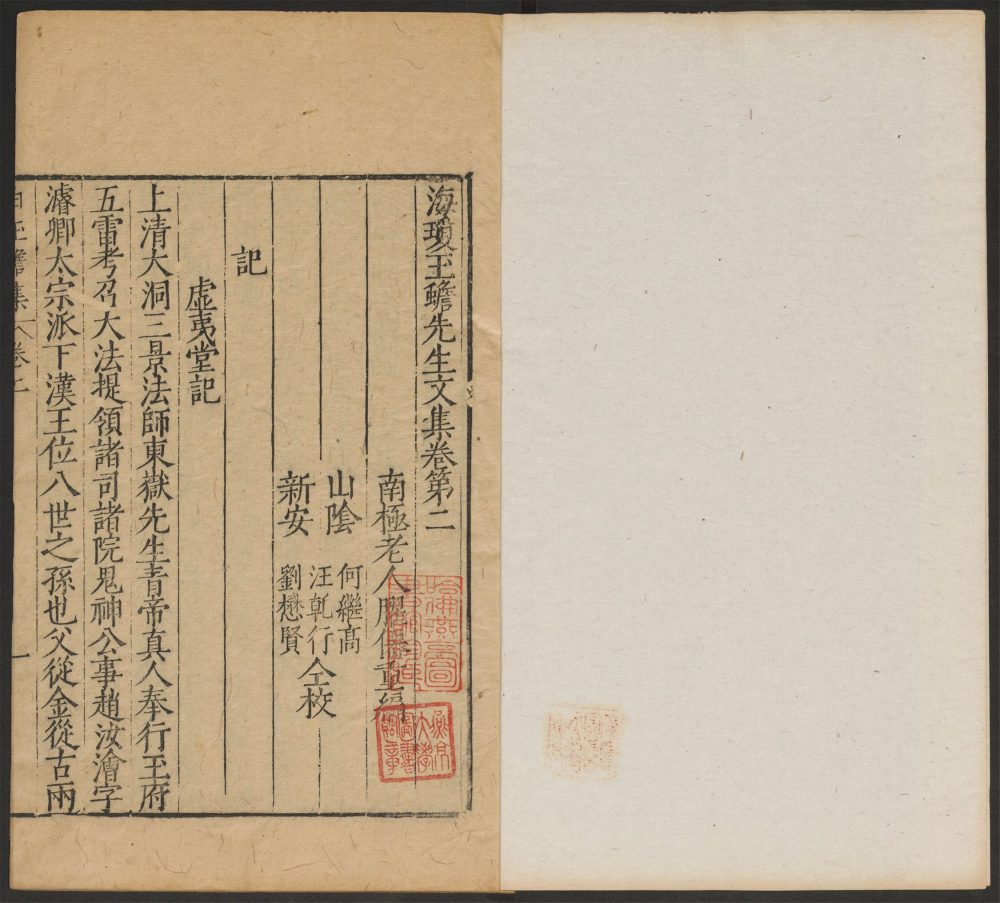 海瓊玉蟾先生文集卷第二
南極老人臞僊重編
山陰 何繼高
新安 汪乹行 劉懋賢 仝校
記
虛夷堂記
上清大洞三景法師東嶽先生青帝真人奉行玉府
五雷考召大法提領諸司諸院鬼神公事趙汝澮字
濬卿太宗派下漢王位八世之孫也父從金從古兩
白玉蟾集 卷二 一